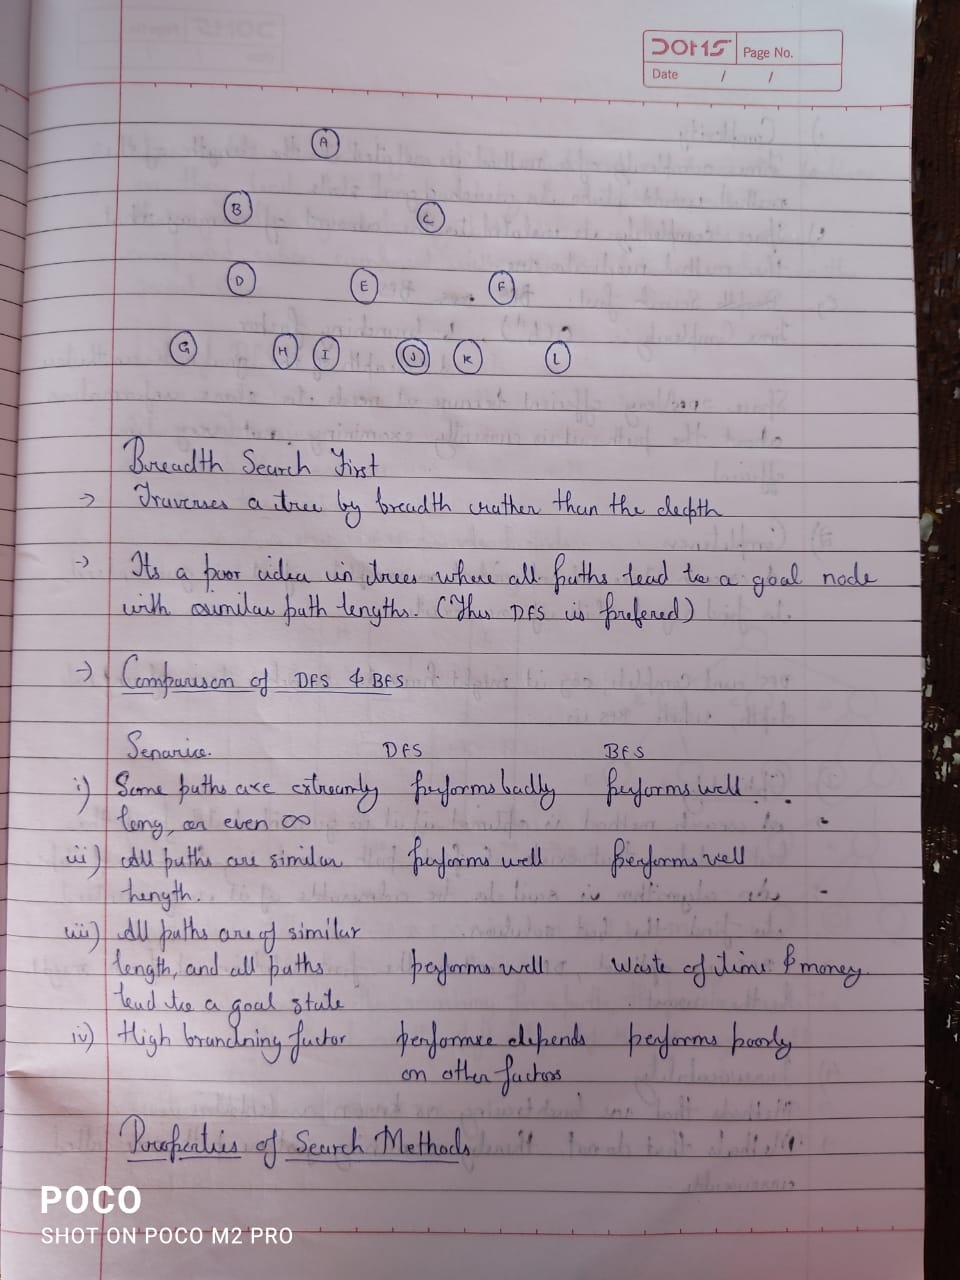 DOMS
Page No.
Date / /
A
B C
D E F
G H I J K L
Breadth Search First
-> Traverses a tree by breadth rather than the depth
-> Its a poor idea in trees where all paths lead to a goal node
with similar path lengths. (This DFS is prefered)
-> Comparison of DFS & BFS
Senarios. DFS BFS
i) Some paths are extreamly performs badly performs well
long, or even ∞
ii) All paths are similar performs well performs well
length.
iii) All paths are of similar
length, and all paths performs well Waste of time & money
lead to a goal state
iv) High branching factor performce depends performs poorly
on other factors
Properties of Search Methods
POCO
SHOT ON POCO M2 PRO